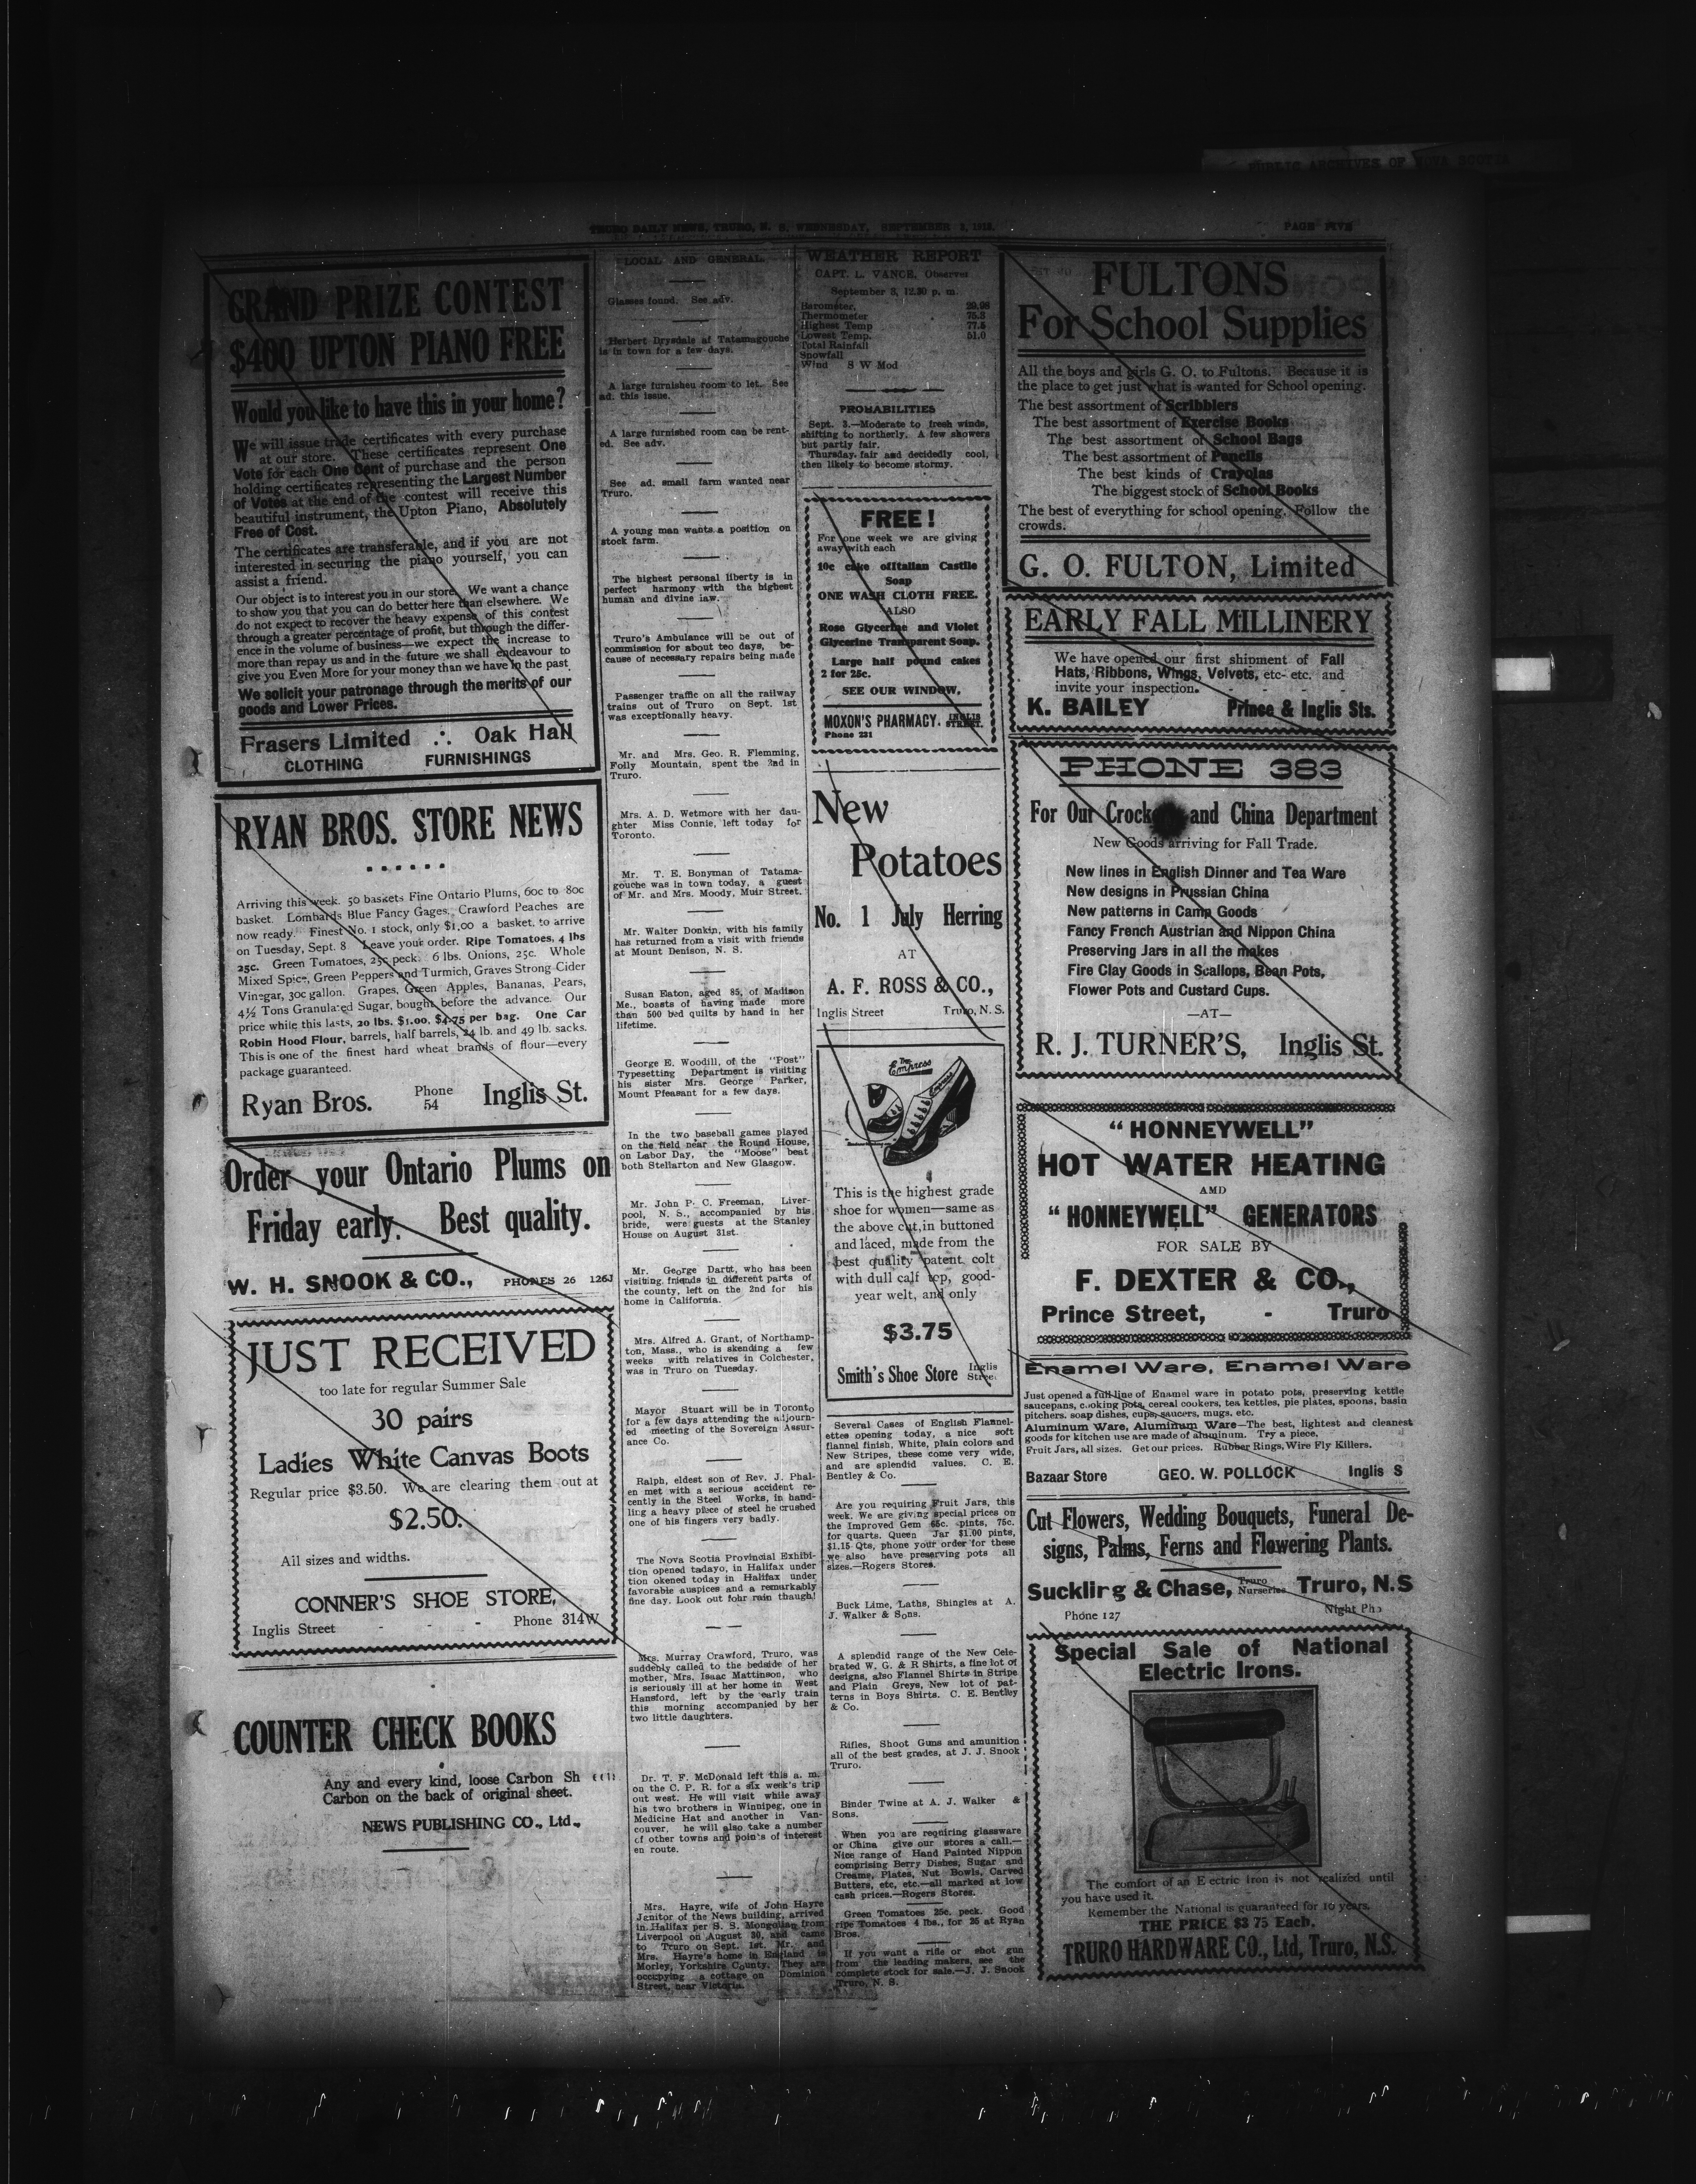 PUBLIC ARCHIVES OF NOVA SCOTIA
TRURO DAILY NEWS, TRURO, N. S. WEDNESDAY, SEPTEMBER
PAGE FIVE
GRAND PRIZE CONTEST
$400 UPTON PIANO FREE
Would you like to have this in your home?
We will issue trade certificates with every purchase
at our store. These certificates represent One
Vote for each One Cent of purchase and the person
holding certificates representing the Largest Number
of Votes at the end of the contest will receive this
beautiful instrument, the Upton Piano, Absolutely
Free of Cost.
The certificates are transferable, and if you are not
interested in securing the piano yourself, you can
assist a friend.
Our object is to interest you in our store. We want a chance
to show you that you can do better here than elsewhere. We
do not expect to recover the heavy expense of this contest
through a greater percentage of profit, but through the differ-
ence in the volume of business—we expect the increase to
more than repay us and in the future we shall endeavour to
give you Even More for your money than we have in the past
We solicit your patronage through the merits of our
goods and Lower Prices.
Frasers Limited ∴ Oak Hall
CLOTHING FURNISHINGS
RYAN BROS. STORE NEWS
Arriving this week. 50 baskets Fine Ontario Plums, 60c to 80c
basket. Lombards Blue Fancy Gages. Crawford Peaches are
now ready. Finest No. 1 stock, only $1.00 a basket. to arrive
on Tuesday, Sept. 8 Leave your order. Ripe Tomatoes, 4 lbs
25c. Green Tomatoes, 25c peck. 6 lbs. Onions, 25c. Whole
Mixed Spice, Green Peppers and Turmich, Graves Strong Cider
Vinegar, 30c gallon. Grapes, Green Apples, Bananas, Pears,
4½ Tons Granulated Sugar, bought before the advance. Our
price while this lasts, 20 lbs. $1.00, $4.75 per bag. One Car
Robin Hood Flour, barrels, half barrels, 24 lb. and 49 lb. sacks.
This is one of the finest hard wheat brands of flour—every
package guaranteed.
Ryan Bros. Phone 54 Inglis St.
Order your Ontario Plums on
Friday early. Best quality.
W. H. SNOOK & CO., PHONES 26 126J
JUST RECEIVED
too late for regular Summer Sale
30 pairs
Ladies White Canvas Boots
Regular price $3.50. We are clearing them out at
$2.50.
All sizes and widths.
CONNER'S SHOE STORE,
Inglis Street - - - Phone 314W
COUNTER CHECK BOOKS
Any and every kind, loose Carbon Sh
Carbon on the back of original sheet.
NEWS PUBLISHING CO., Ltd.,
LOCAL AND GENERAL.
Glasses found. See adv.
Herbert Drysdale of Tatamagouche
is in town for a few days.
A large furnisheu room to let. See
ad. this issue.
A large furnished room can be rent-
ed. See adv.
See ad. small farm wanted near
Truro.
A young man wants a position on
stock farm.
The highest personal liberty is in
perfect harmony with the highest
human and divine law.
Truro's Ambulance will be out of
commission for about teo days, be-
cause of necessary repairs being made
Passenger traffic on all the railway
trains out of Truro on Sept. 1st
was exceptionally heavy.
Mr. and Mrs. Geo. R. Flemming,
Folly Mountain, spent the 2nd in
Truro.
Mrs. A. D. Wetmore with her dau-
ghter Miss Connie, left today for
Toronto.
Mr. T. E. Bonyman of Tatama-
gouche was in town today, a guest
of Mr. and Mrs. Moody, Muir Street.
Mr. Walter Donkin, with his family
has returned from a visit with friends
at Mount Denison, N. S.
Susan Eaton, aged 85, of Madison
Me., boasts of having made more
than 500 bed quilts by hand in her
lifetime.
George E. Woodill, of the "Post"
Typesetting Department is visiting
his sister Mrs. George Parker,
Mount Pfeasant for a few days.
In the two baseball games played
on the field near the Round House,
on Labor Day, the "Moose" beat
both Stellarton and New Glasgow.
Mr. John P. C. Freeman, Liver-
pool, N. S., accompanied by his
bride, were guests at the Stanley
House on August 31st.
Mr. George Dartt, who has been
visiting friends in different parts of
the county, left on the 2nd for his
home in California.
Mrs. Alfred A. Grant, of Northamp-
ton, Mass., who is skending a few
weeks with relatives in Colchester,
was in Truro on Tuesday.
Mayor Stuart will be in Toronto
for a few days attending the adjourn-
ed meeting of the Sovereign Assur-
ance Co.
Ralph, eldest son of Rev. J. Phal-
en met with a serious accident re-
cently in the Steel Works, in hand-
ling a heavy piece of steel he crushed
one of his fingers very badly.
The Nova Scotia Provincial Exhibi-
tion opened tadayo, in Halifax under
tion okened today in Halifax under
favorable auspices and a remarkably
fine day. Look out fohr rain thaugh!
Mrs. Murray Crawford, Truro, was
suddebly called to the bedside of her
mother, Mrs. Isaac Mattinson, who
is seriously ill at her home in West
Hansford, left by the early train
this morning accompanied by her
two little daughters.
Dr. T. F. McDonald left this a. m.
on the C. P. R. for a six week's trip
out west. He will visit while away
his two brothers in Winnipeg, one in
Medicine Hat and another in Van-
couver, he will also take a number
of other towns and points of interest
en route.
Mrs. Hayre, wife of John Hayre
Jenitor of the News building, arrived
in Halifax per S. S. Mongolian from
Liverpool on August 30, and came
to Truro on Sept. 1st. Mr. and
Mrs. Hayre's home in England is
Morley, Yorkshire County. They are
occupying a cottage on Dominion
Street, near Victoria.
WEATHER REPORT
CAPT. L. VANCE, Observer
September 3, 12.30 p. m.
Barometer 29.98
Thermometer 75.3
Highest Temp 77.5
Lowest Temp. 51.0
Total Rainfall
Snowfall
Wind S W Mod
PROBABILITIES
Sept. 3.—Moderate to fresh winds,
shifting to northerly. A few showers
but partly fair.
Thursday fair and decidedly cool,
then likely to become stormy.
FREE!
For one week we are giving
away with each
10c cake ofItalian Castile
Soap
ONE WASH CLOTH FREE.
ALSO
Rose Glycerine and Violet
Glycerine Transparent Soap.
Large half pound cakes
2 for 25c.
SEE OUR WINDOW,
MOXON'S PHARMACY. INGLIS STREET.
Phone 231
New
Potatoes
No. 1 July Herring
AT
A. F. ROSS & CO.,
Inglis Street Truro, N. S.
The Empress
This is the highest grade
shoe for women—same as
the above cut, in buttoned
and laced, made from the
best quality patent colt
with dull calf top, good-
year welt, and only
$3.75
Smith's Shoe Store Inglis Street
Several Cases of English Flannel-
ettes opening today, a nice soft
flannel finish, White, plain colors and
New Stripes, these come very wide,
and are splendid values. C. E.
Bentley & Co.
Are you requiring Fruit Jars, this
week. We are giving special prices on
the Improved Gem 65c. pints, 75c.
for quarts. Queen Jar $1.00 pints,
$1.15 Qts, phone your order for these
we also have preserving pots all
sizes.—Rogers Stores.
Buck Lime, Laths, Shingles at A.
J. Walker & Sons.
A splendid range of the New Cele-
brated W. G. & R Shirts, a fine lot of
designs, also Flannel Shirts in Stripe
and Plain Greys, New lot of pat-
terns in Boys Shirts. C. E. Bentley
& Co.
Rifles, Shoot Guns and amunition
all of the best grades, at J. J. Snook
Truro.
Binder Twine at A. J. Walker &
Sons.
When you are requiring glassware
or China give our stores a call.—
Nice range of Hand Painted Nippon
comprising Berry Dishes, Sugar and
Creams, Plates, Nut Bowls, Carved
Butters, etc, etc.—all marked at low
cash prices.—Rogers Stores.
Green Tomatoes 25c. peck. Good
ripe Tomatoes 4 lbs., for 25 at Ryan
Bros.
If you want a rifle or shot gun
from the leading makers, see the
complete stock for sale.—J. J. Snook
Truro, N. S.
FULTONS
For School Supplies
All the boys and girls G. O. to Fultons. Because it is
the place to get just what is wanted for School opening.
The best assortment of Scribblers
The best assortment of Exercise Books
The best assortment of School Bags
The best assortment of Pencils
The best kinds of Crayolas
The biggest stock of School Books
The best of everything for school opening. Follow the
crowds.
G. O. FULTON, Limited
EARLY FALL MILLINERY
We have opened our first shipment of Fall
Hats, Ribbons, Wings, Velvets, etc- etc. and
invite your inspection. - - - -
K. BAILEY Prince & Inglis Sts.
PHONE 383
For Our Crock and China Department
New Goods arriving for Fall Trade.
New lines in English Dinner and Tea Ware
New designs in Prussian China
New patterns in Camp Goods
Fancy French Austrian and Nippon China
Preserving Jars in all the makes
Fire Clay Goods in Scallops, Bean Pots,
Flower Pots and Custard Cups.
—AT—
R. J. TURNER'S, Inglis St.
"HONNEYWELL"
HOT WATER HEATING
AMD
"HONNEYWELL" GENERATORS
FOR SALE BY
F. DEXTER & CO.,
Prince Street, - Truro
Enamel Ware, Enamel Ware
Just opened a full line of Enamel ware in potato pots, preserving kettle
saucepans, cooking pots, cereal cookers, tea kettles, pie plates, spoons, basin
pitchers. soap dishes, cups, saucers, mugs. etc.
Aluminum Ware, Aluminum Ware—The best, lightest and cleanest
goods for kitchen use are made of aluminum. Try a piece.
Fruit Jars, all sizes. Get our prices. Rubber Rings, Wire Fly Killers.
Bazaar Store GEO. W. POLLOCK Inglis S
Cut Flowers, Wedding Bouquets, Funeral De-
signs, Palms, Ferns and Flowering Plants.
Suckling & Chase, Truro Nurseries Truro, N.S
Phone 127 Night Pho
Special Sale of National
Electric Irons.
The comfort of an E ectric Iron is not realized until
you have used it.
Remember the National is guaranteed for 10 years.
THE PRICE $3 75 Each.
TRURO HARDWARE CO., Ltd, Truro, N.S.